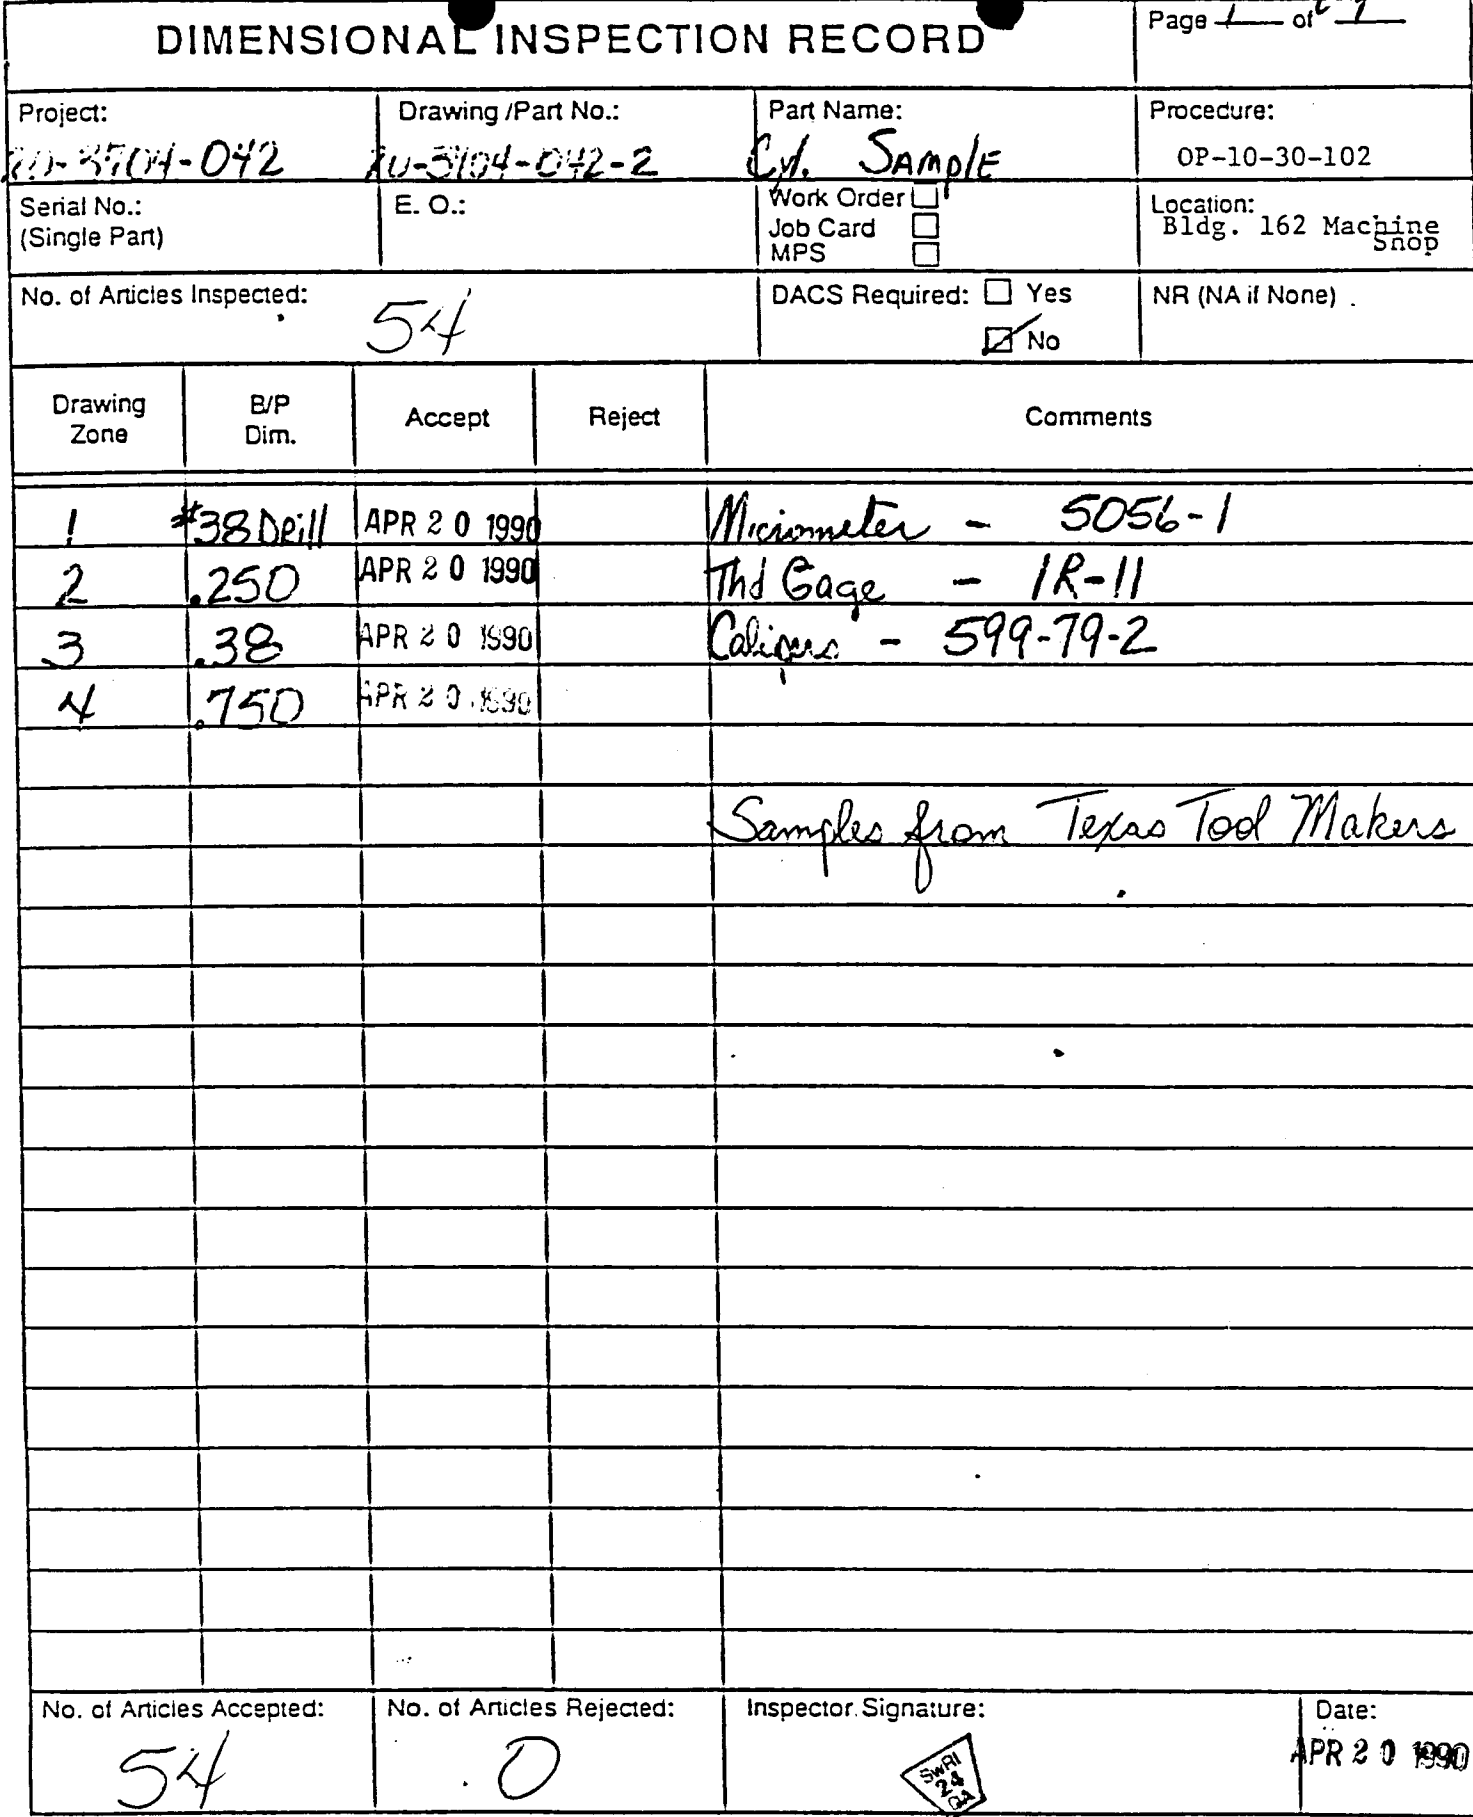 DIMENSIONAL INSPECTION RECORD
Page 1 of 1
Project:
Drawing /Part No.:
Part Name:
Procedure:
20-3704-042
20-3704-042-2
Cyl. SAMplE
OP-10-30-102
Serial No.:
(Single Part)
E. O.:
Work Order
Job Card
MPS
Location:
Bldg. 162 Machine
Shop
No. of Articles Inspected:
54
DACS Required: Yes
No
NR (NA if None)
Drawing
Zone
B/P
Dim.
Accept
Reject
Comments
1 #38 Drill APR 20 1990 Micrometer - 5056-1
2 .250 APR 20 1990 Thd Gage - IR-11
3 .38 APR 20 1990 Calipers - 599-79-2
4 .750 APR 20 1990
Samples from Texas Tool Makers
No. of Articles Accepted:
54
No. of Articles Rejected:
0
Inspector Signature:
SwRI
24
QA
Date:
APR 20 1990